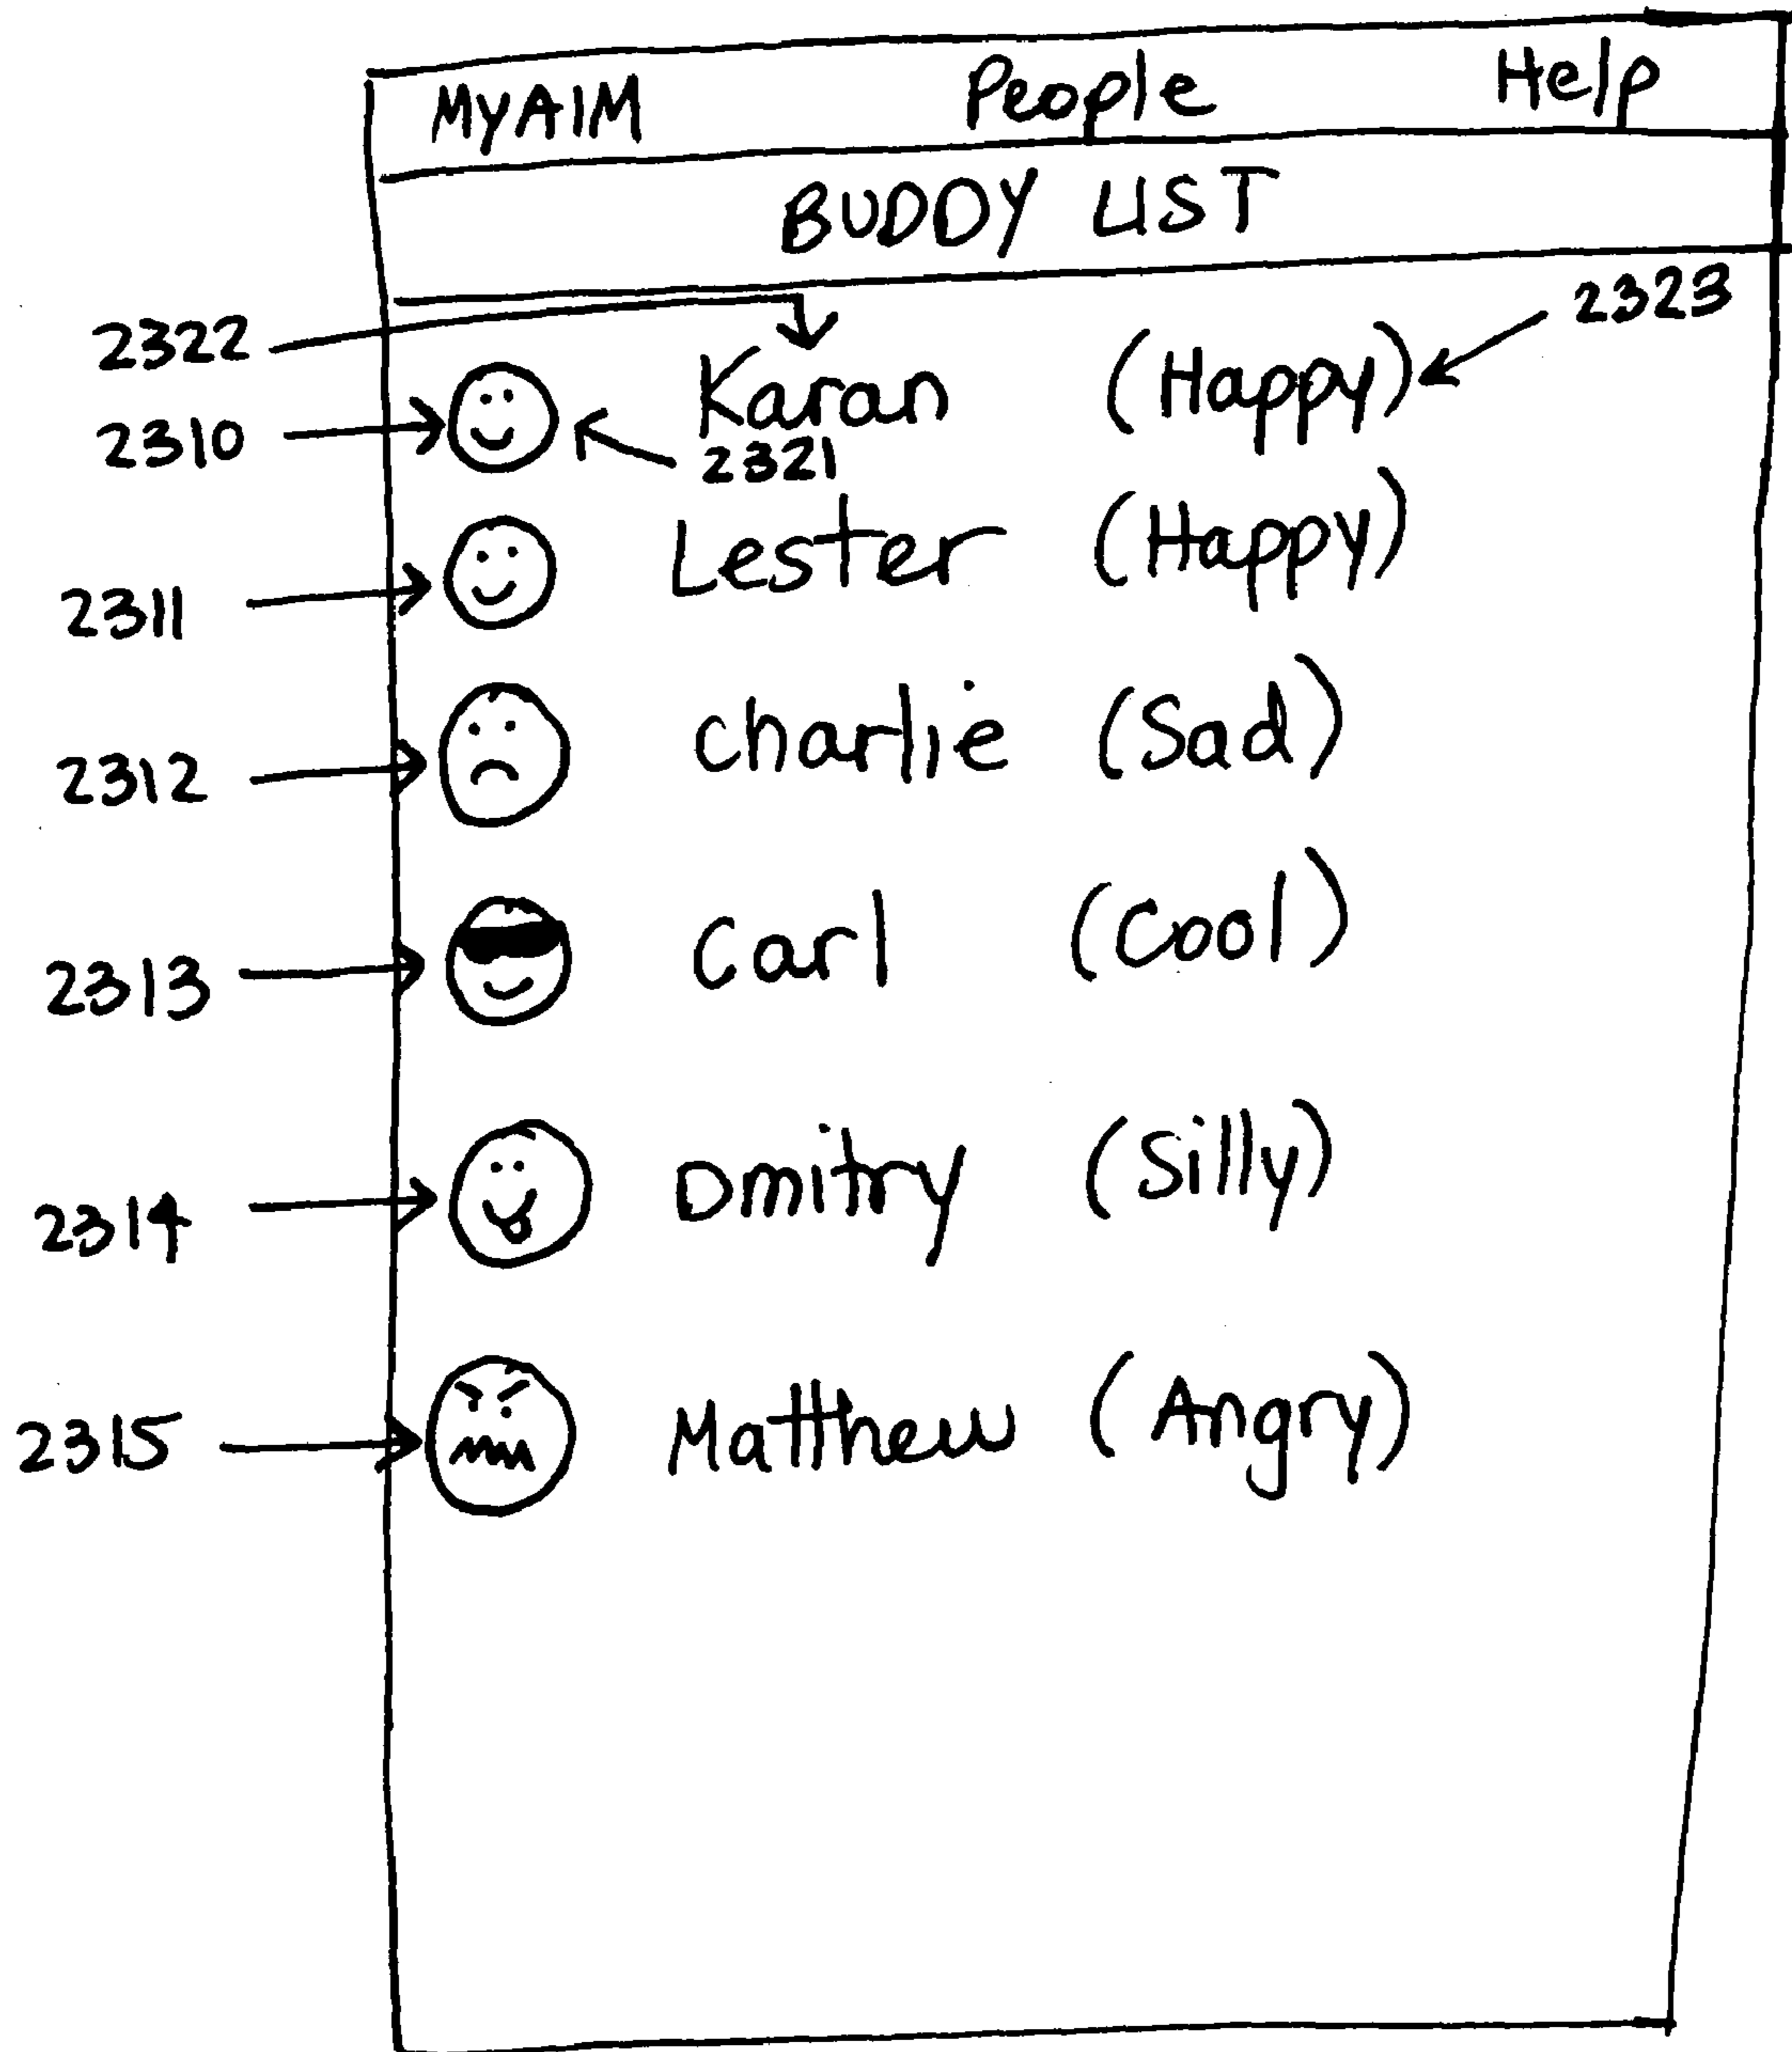 MyAIM People Help
BUDDY LIST
2322
2323
2310 Karan (Happy)
2321
2311 Lester (Happy)
2312 charlie (Sad)
2313 Carl (Cool)
2314 Dmitry (Silly)
2315 Matthew (Angry)